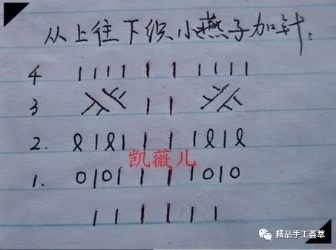 从上往下织小燕子加针:
4 1 1 1 1 1 1 1 1 1 1
3
2. ℓ 1 ℓ 1 1 1 1 ℓ 1 ℓ
凯薇儿
1. 0 1 0 1 1 1 1 0 1 0
1 1 1 1 1 1
精品手工荟萃